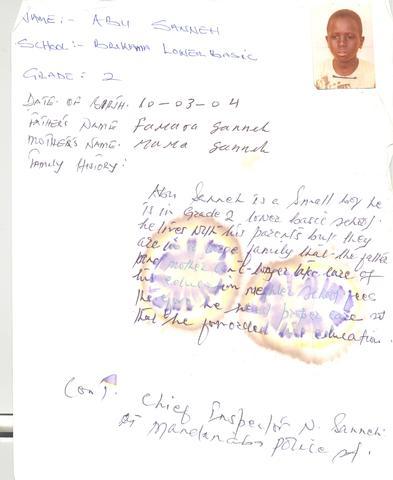 NAME:- ABU SANNEH
SCHOOL:- BRIKAMA LOWER BASIC
GRADE:- 2
DATE OF BIRTH. 10-03-04
FATHER'S NAME Famara Sanneh
MOTHER'S NAME. Mama Sanneh
Family History:
Abu Sanneh is a Small boy he
is in Grade 2 lower basic school.
he lives with his parents but they
are in a large family that the father
and mother can't longer take care of
his education neither school fees
he need proper care so
that he his education.
Cont.
Chief Inspector N. Sanneh
at Mandinaba Police